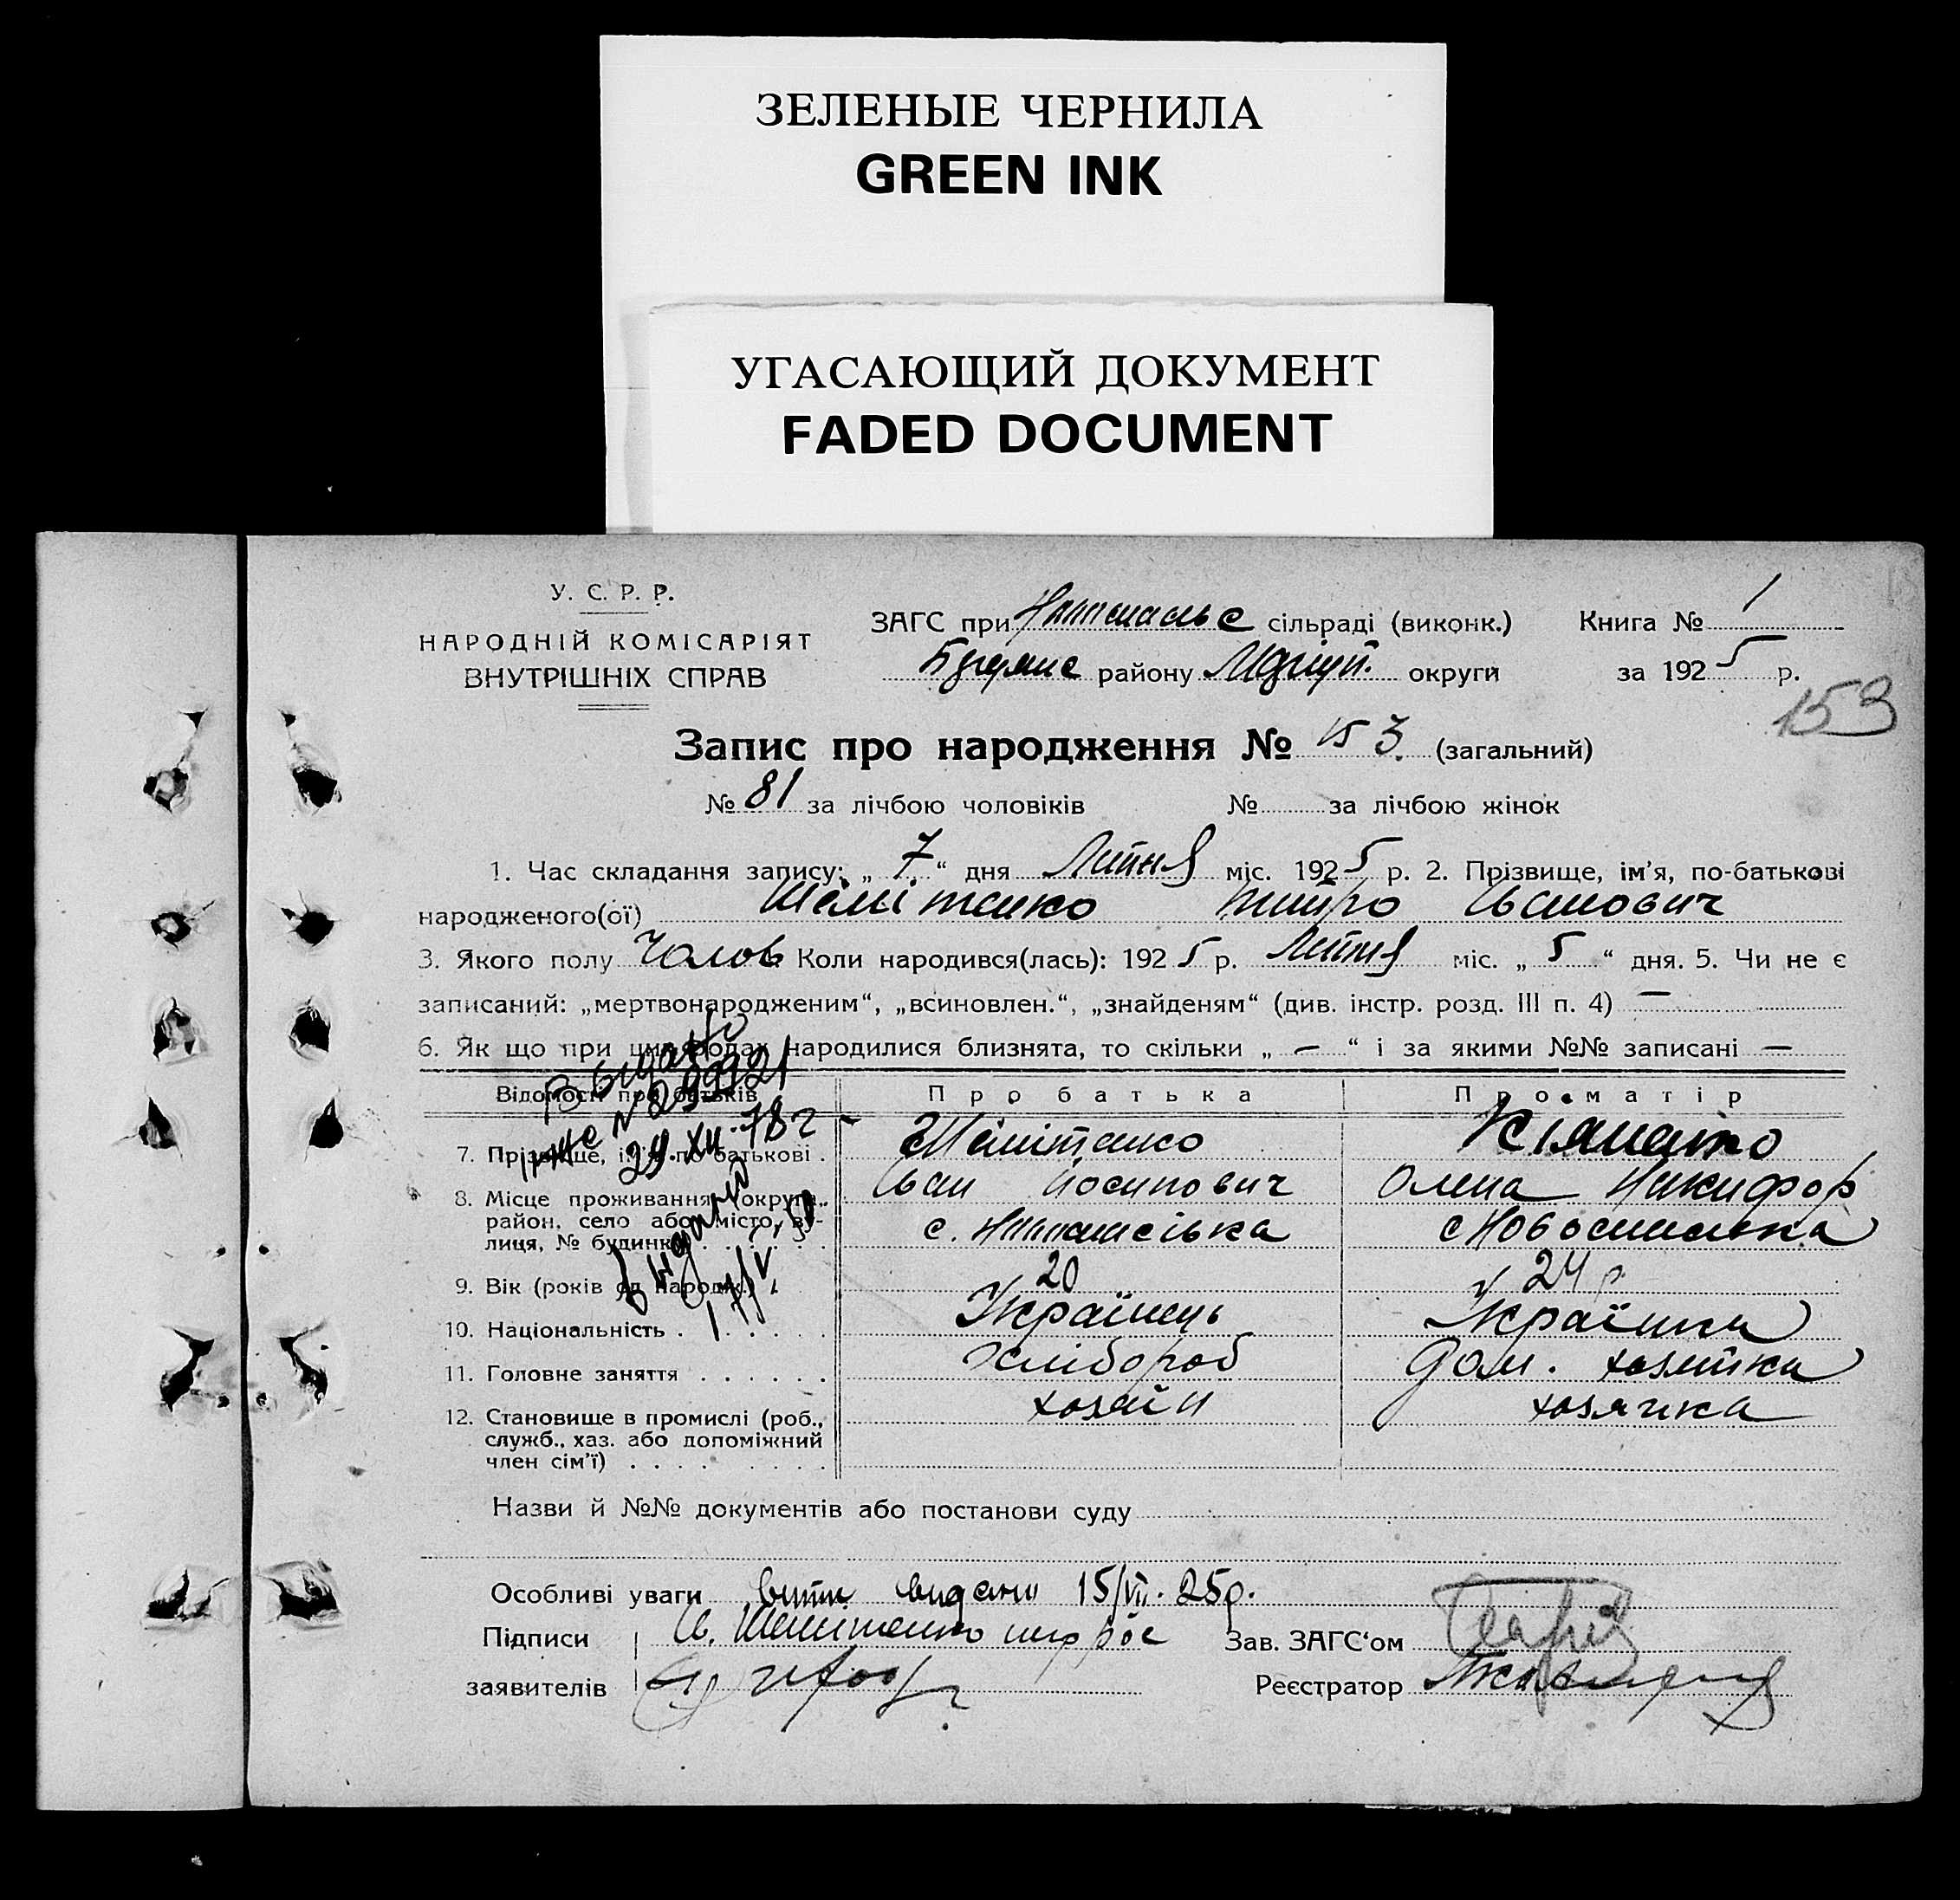 ЗЕЛЕНЫЕ ЧЕРНИЛА
GREEN INK
УГАСАЮЩИЙ ДОКУМЕНТ
FADED DOCUMENT
У. С. Р. Р.
НАРОДНІЙ КОМІСАРІЯТ
ВНУТРІШНІХ СПРАВ
ЗАГС при сільраді (виконк.)
району округи
Книга № 1
за 1925 р.
153
Запис про народження № 153. (загальний)
№ 81 за лічбою чоловіків № за лічбою жінок
1. Час складання запису: „ 7 “ дня Липня міс. 1925 р. 2. Прізвище, ім'я, по-батькові
народженого(ої) Іванович
3. Якого полу Чолов. Коли народився(лась): 1925 р. Липня міс. „ 5 “ дня. 5. Чи не є
записаний: „мертвонародженим“, „всиновлен.“, „знайденям“ (див. інстр. розд. III п. 4) —
6. Як що при цих родах народилися близнята, то скільки „ — “ і за якими №№ записані —
Відомості про батьків Про батька Про матір
7. Прізвище, ім'я, по-батькові
Іван Йосипович Олена Никифор
8. Місце проживання (округа,
район, село або місто, ву-
лиця, № будинку) с. с
9. Вік (років од народж.) 20 24 р.
10. Національність Українець Українка
11. Головне заняття Хлібороб Дом. хозяйка
12. Становище в промислі (роб.,
служб., хаз. або допоміжний
член сім'ї) хозяїн хозячка
Выдано
№ 299921
29.XII-78 г
Видано
17/V
Назви й №№ документів або постанови суду
Особливі уваги видано 15/VII. 25р.
Підписи
заявителів
Зав. ЗАГС'ом
Реєстратор